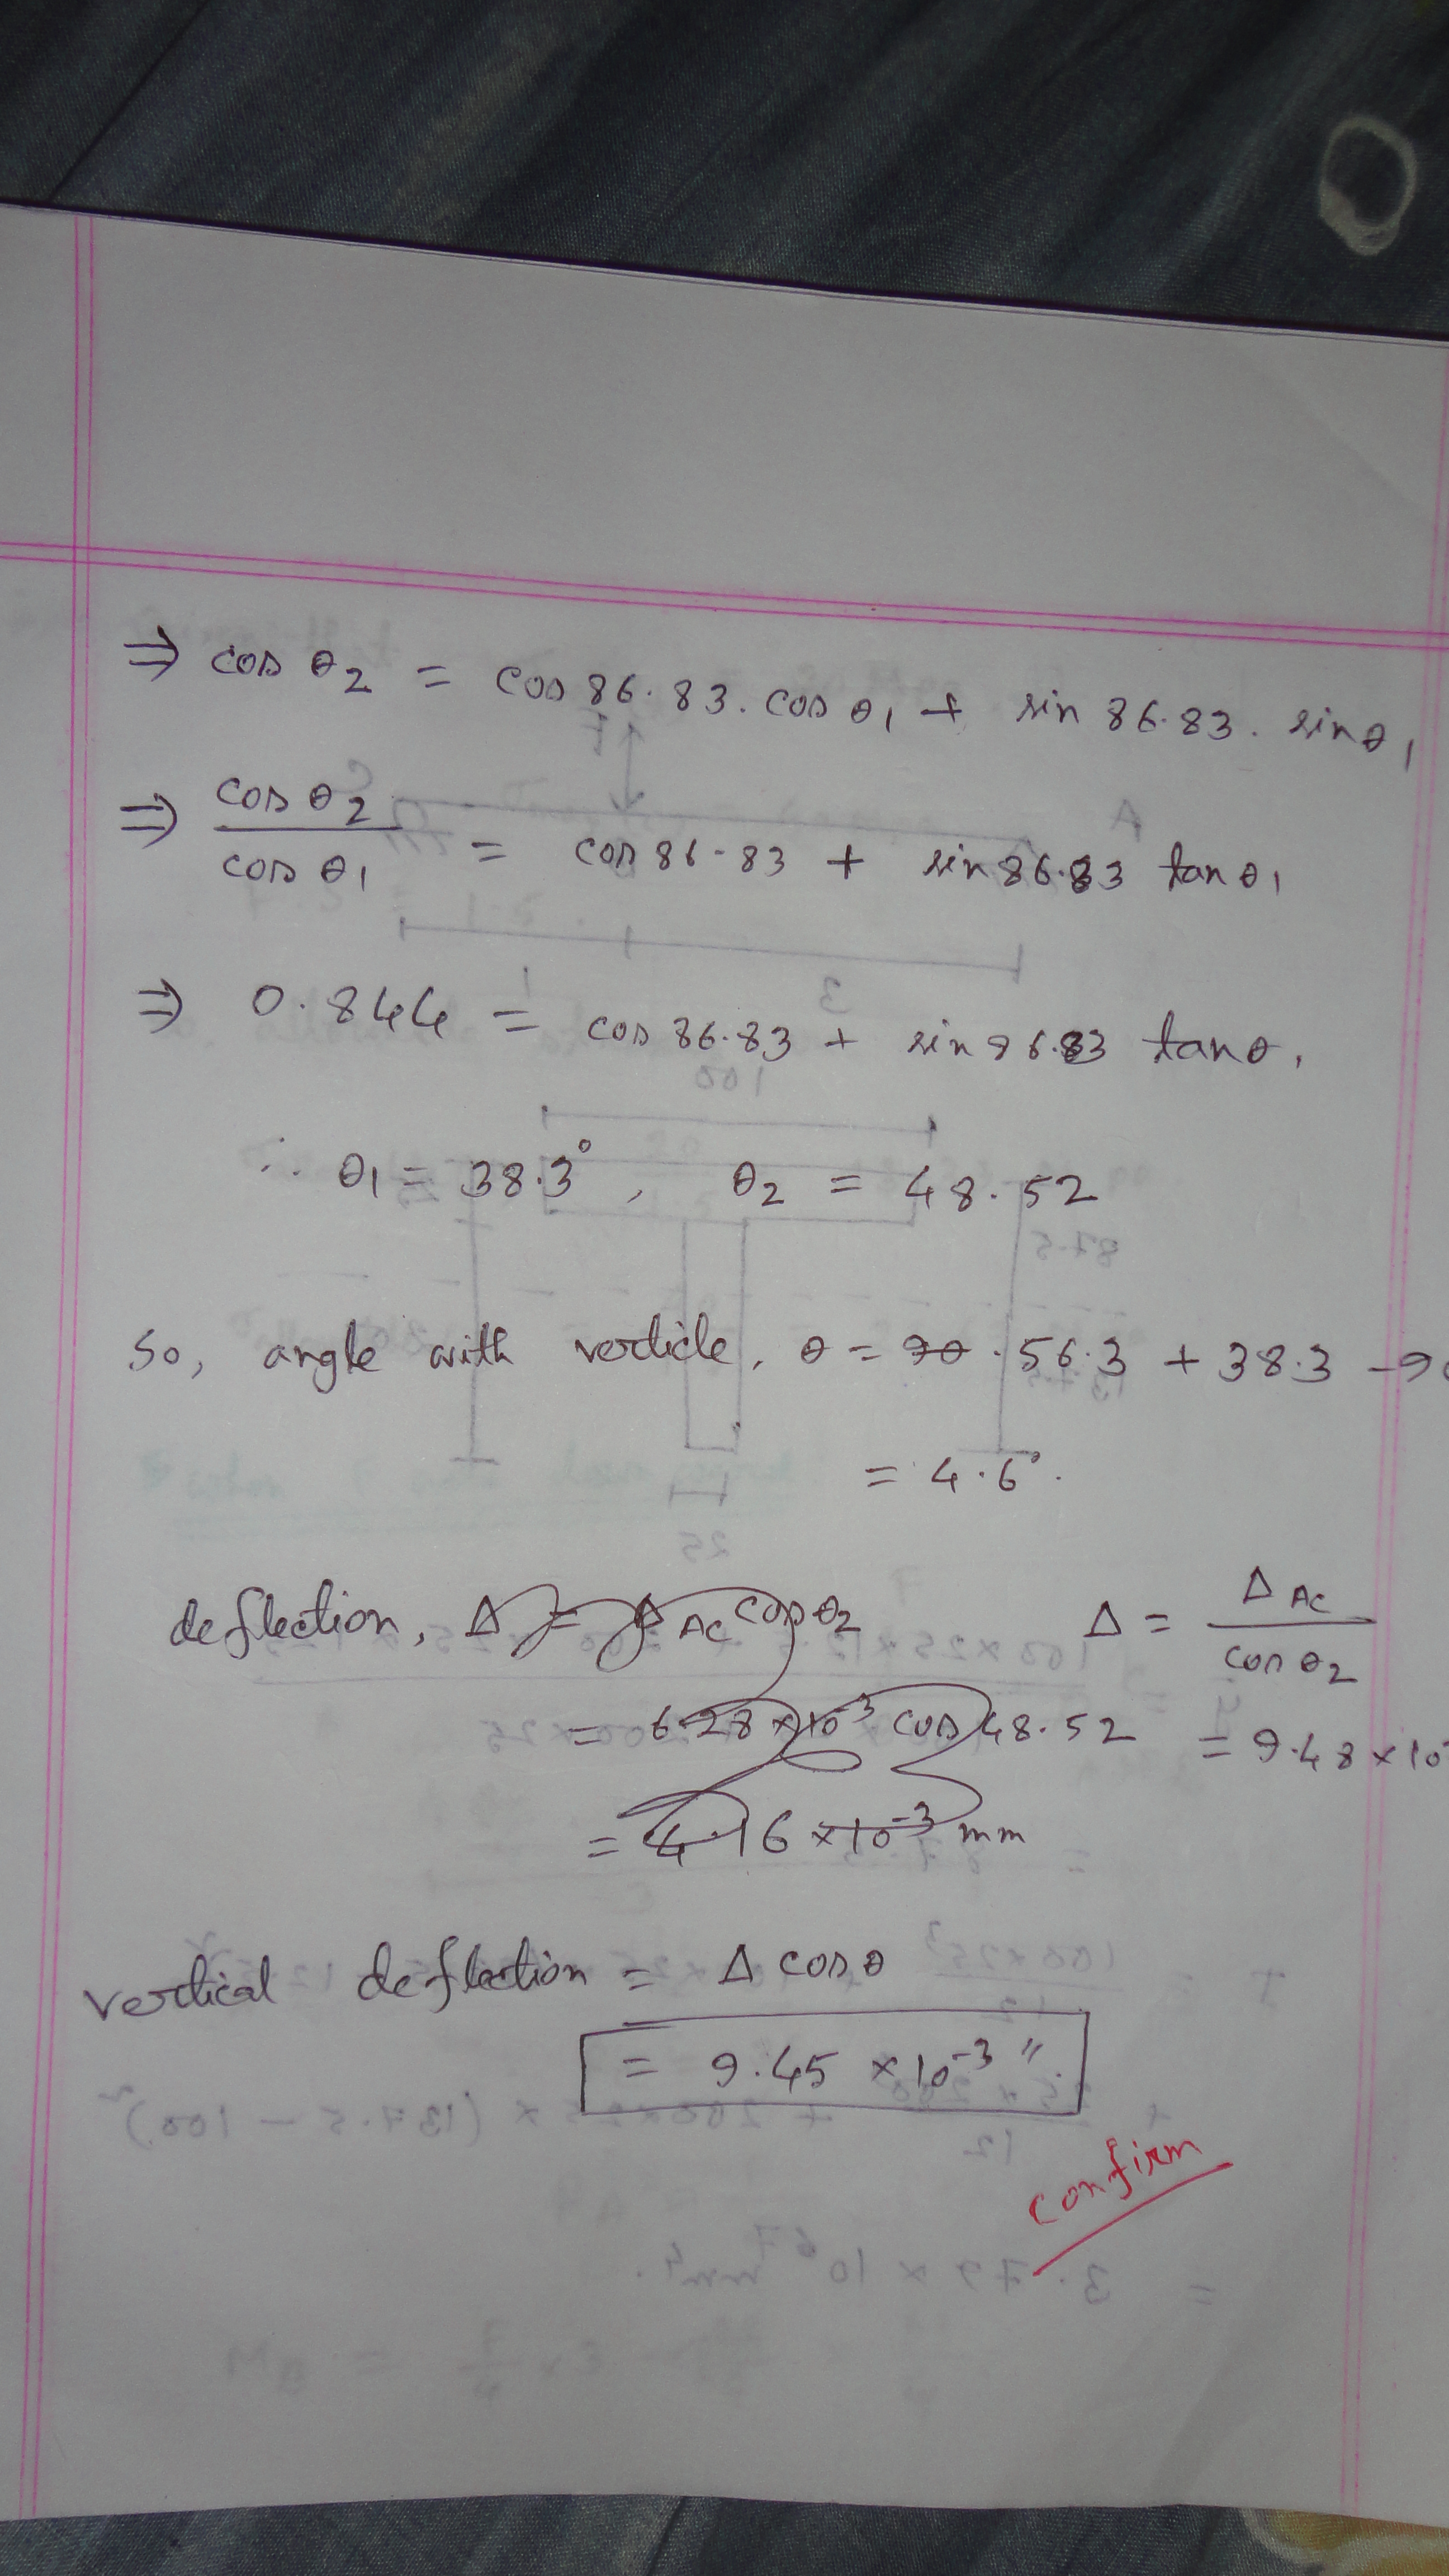 ⇒ cos θ2 = cos 86.83. cos θ1 + sin 86.83. sin θ1
⇒ cos θ2 / cos θ1 = cos 86.83 + sin 86.83 tan θ1
⇒ 0.844 = cos 86.83 + sin 86.83 tan θ1
∴ θ1 = 38.3°, θ2 = 48.52
So, angle with verticle, θ = 56.3 + 38.3 - 90
= 4.6°.
deflection, Δ = ΔAC cos θ2 Δ = ΔAC / cos θ2
= 6.28 × 10-3 cos 48.52 = 9.48 × 10
= 4.16 × 10-3 mm
vertical deflection = Δ cos θ
= 9.45 × 10-3 "
confirm